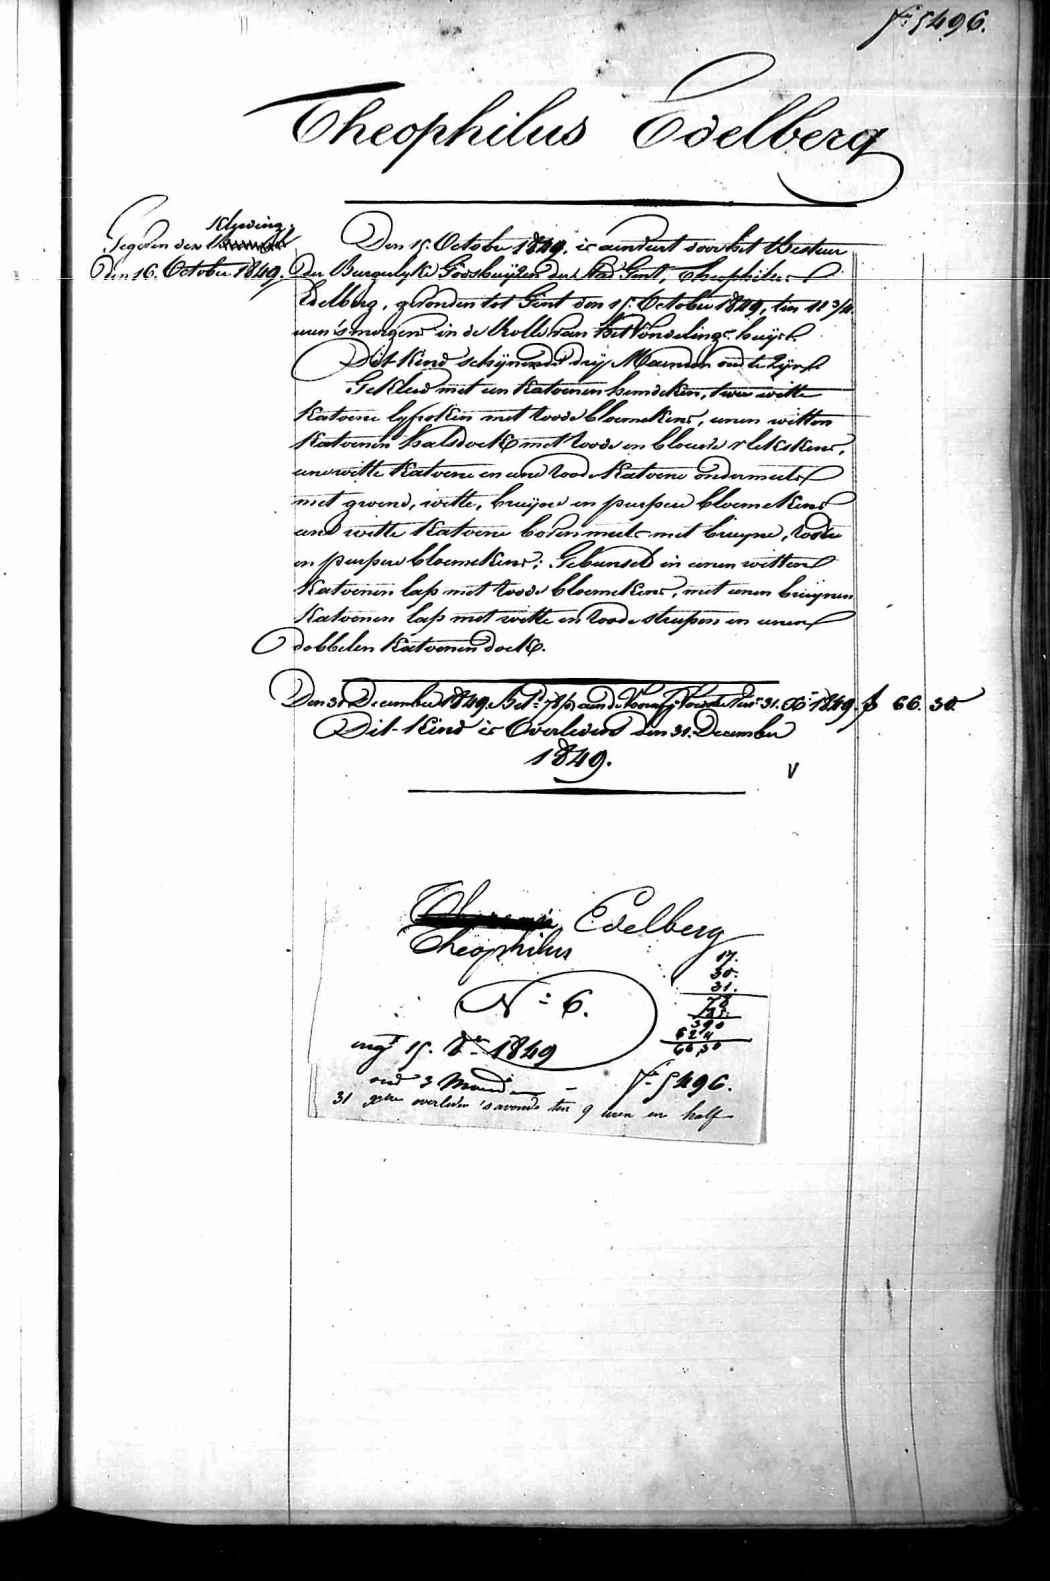 f.° 5496.
Theophilus Edelberg
Klepding
Gegeven den
Den 16. October 1849.
Den 15. October 1849. is aenveert door het Bestuer
der Burgerlyke Godshuyzen der Stad Gent, Theophilus
Edelberg, gevonden tot Gent den 15. October 1849, ten 11 3/4.
uren 'smorgens in de Rolle van het Vondelingshuys.
Dit Kind schijnende drij Maenden oud te zijn
Gekleed met een Katoenen hemdeken, twee witte
Katoene lyfvokken met roode bloemekens, eenen witten
Katoenen halsdoek met roode en blauwe vlekskens,
eene witte Katoene en eene roode Katoene ondermuts
met groene, witte, bruyne en purpere bloemekens
eene witte Katoene bovenmuts met bruyne, roode
en purpere bloemekens; Gebunseld in eenen witten
Katoenen lap met roode bloemekens, met eenen bruynen
Katoenen lap met witte en roode streepen en eenen
dobbelen Katoenen doek.
Den 31 December 1849. Bet.d 78 aen de 31. 1849. f 66. 30.
Dit Kind is Overleden den 31. December
1849.
V
Edelberg
Theophilus
N.° 6.
17.
30.
31.
78
85.
390
624
66,30
15. 8.er 1849
oud 3 Maenden
f.° 5496.
31 overleden 's avonds ten 9 uren en half